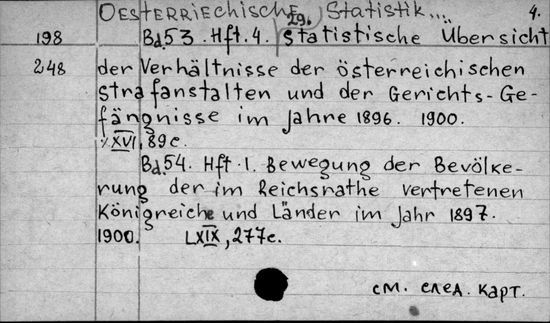 Oesterriechische Statistik... 4.
198 Bd.53. Hft.4. 29. Statistische Übersicht
248 der Verhältnisse der österreichischen
Strafanstalten und der Gerichts-Ge-
fängnisse im Jahre 1896. 1900.
XVI, 89c.
Bd.54. Hft.1. Bewegung der Bevölke-
rung der im Reichsrathe vertretenen
Königreiche und Länder im Jahr 1897.
1900. LXIX, 277c.
см. след. карт.